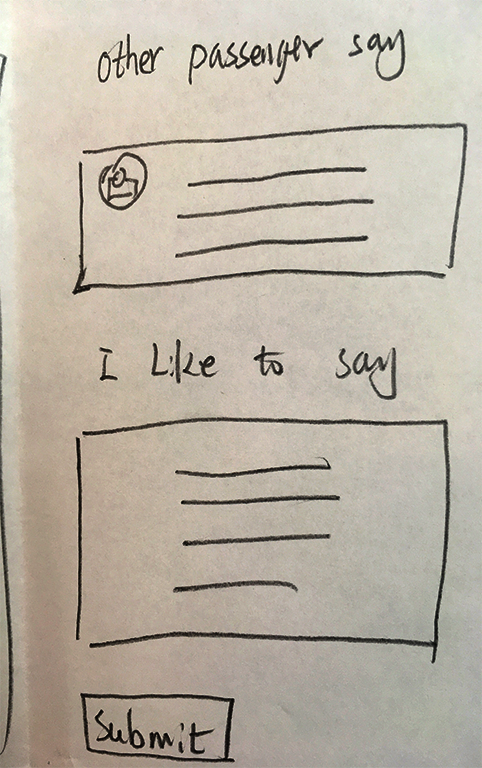 other passenger say
I Like to say
Submit